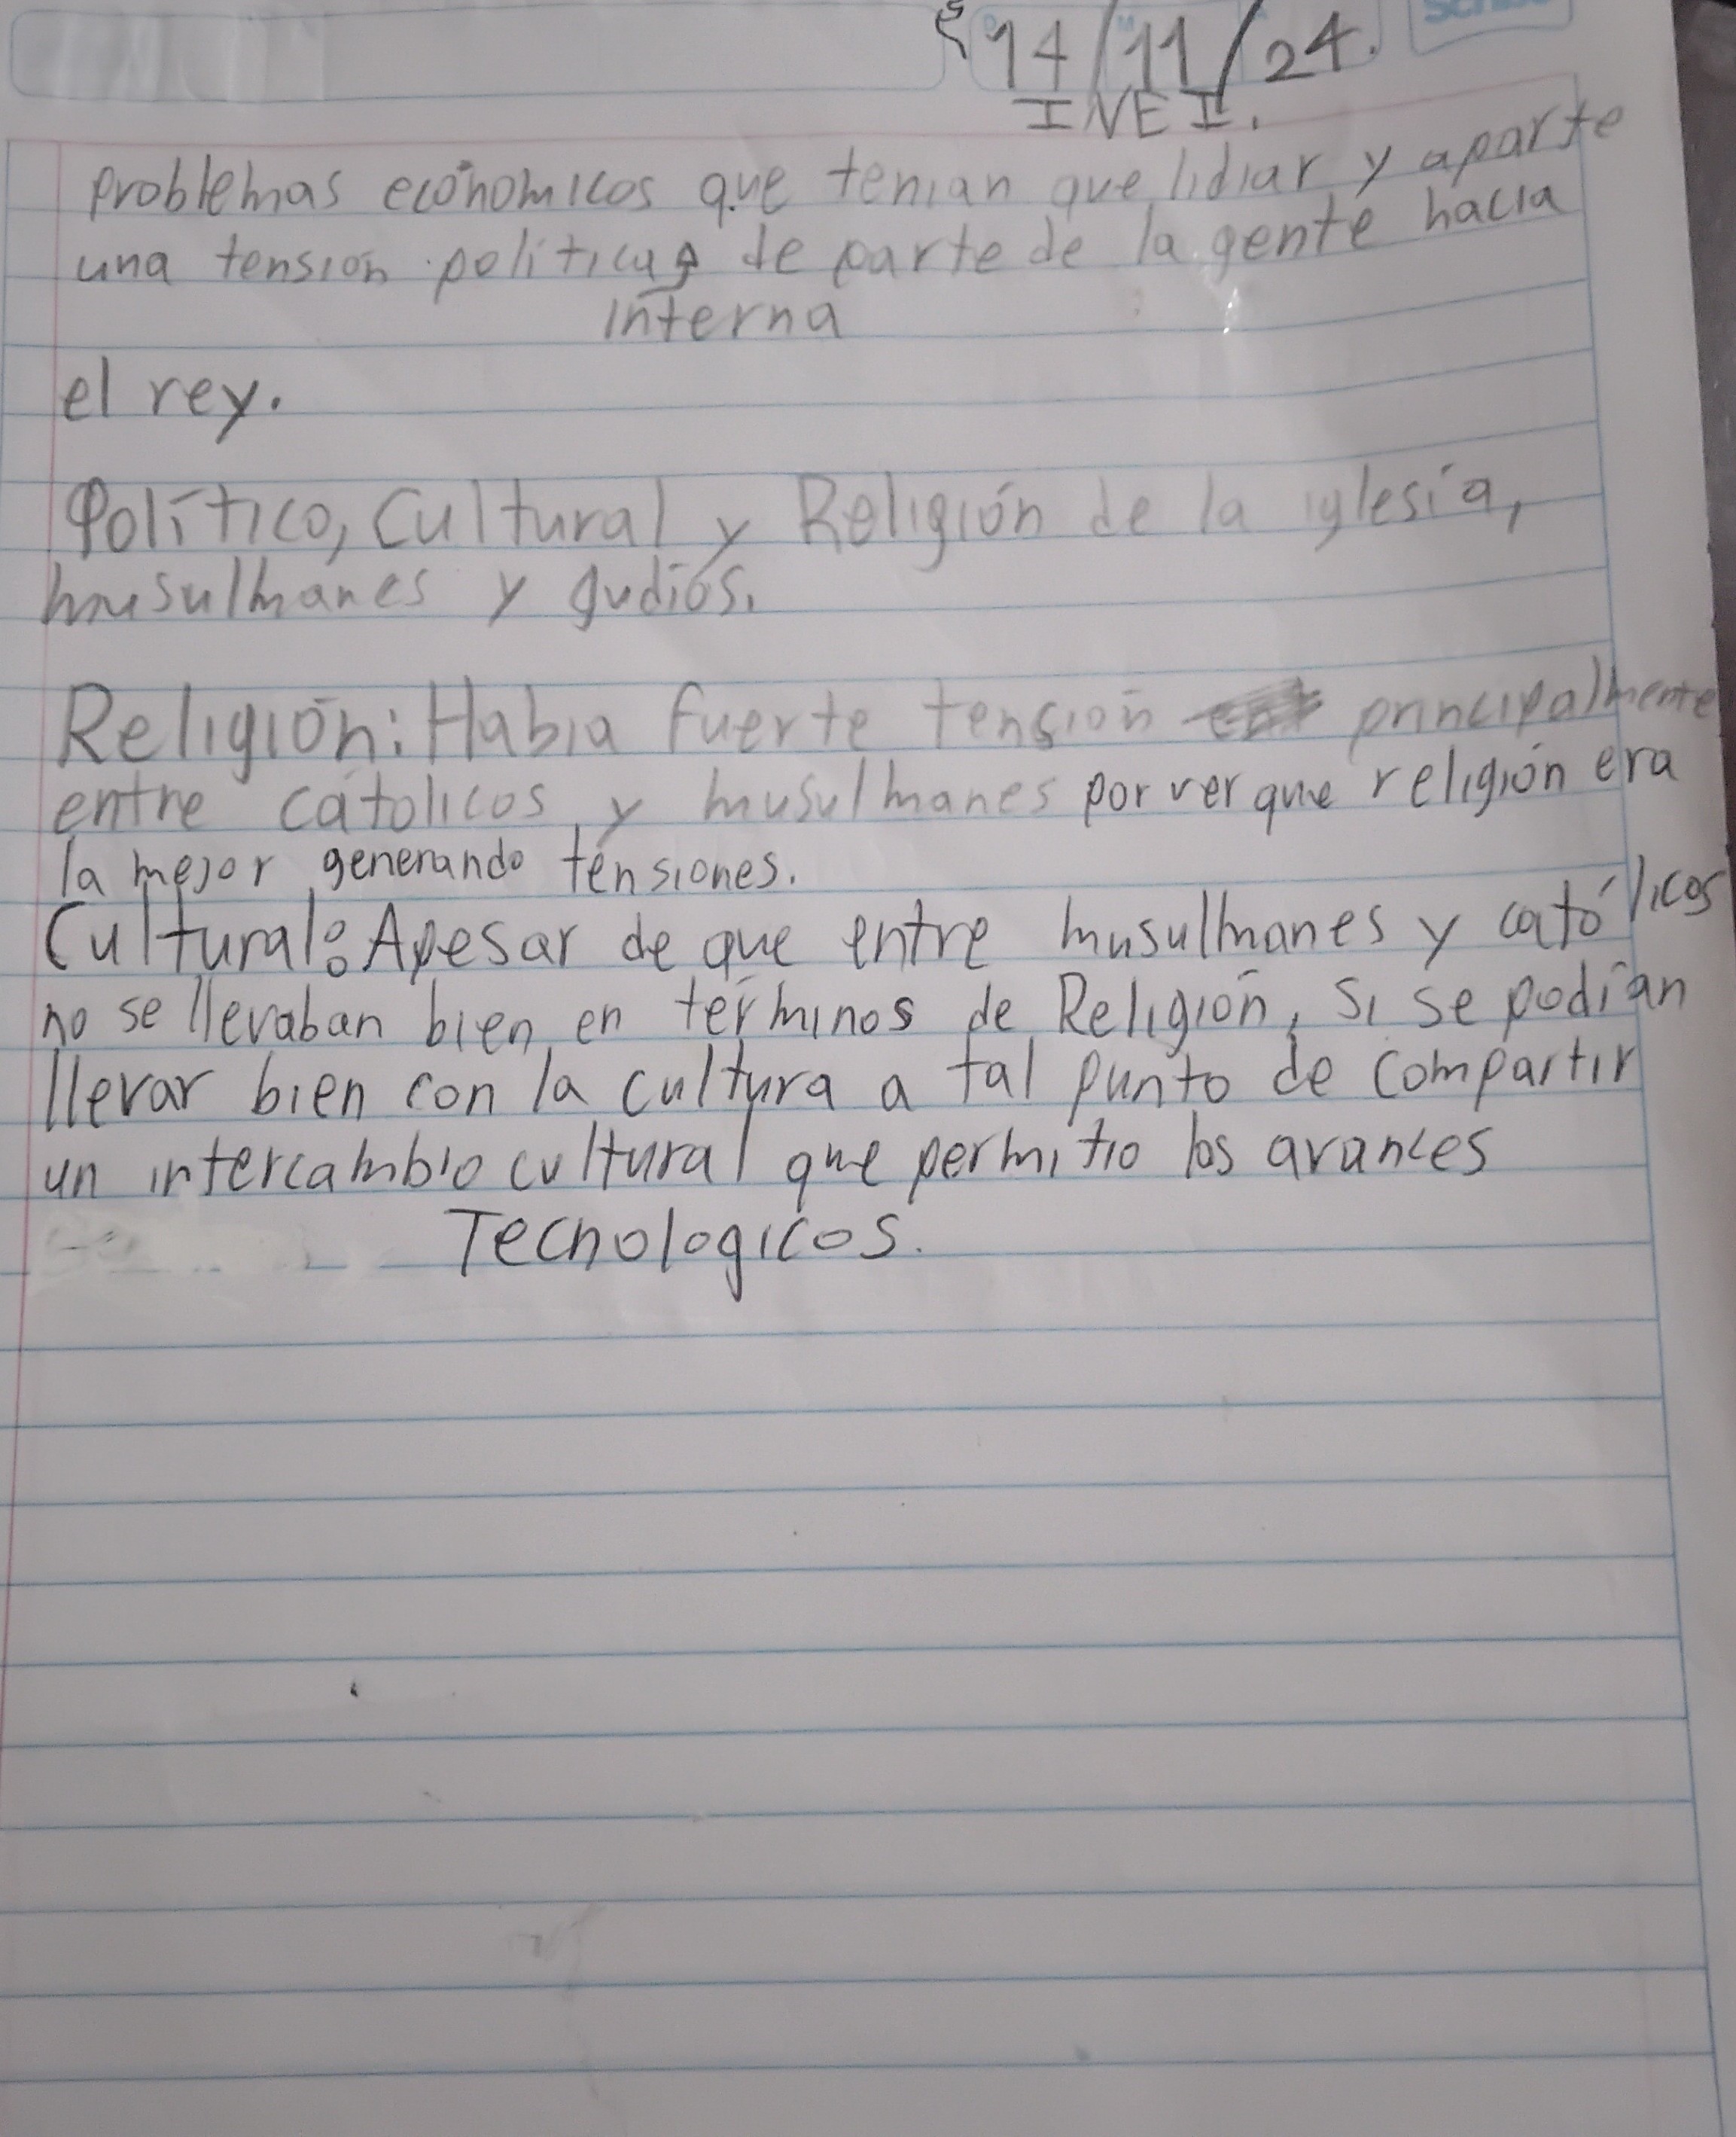 14/11/24.
INE I.
problemas económicos que tenian que lidiar y aparte
una tensión politica de parte de la gente hacia
interna
el rey.
Político, Cultural y Religión de la iglesia,
musulmanes y gudios.
Religión: Habia fuerte tensión principalmente
entre católicos y musulmanes por ver que religión era
la mejor generando tensiones.
Cultural: Apesar de que entre musulmanes y católicos
no se llevaban bien en términos de Religión, si se podían
llevar bien con la cultura a tal punto de compartir
un intercambio cultural que permitio los avances
Tecnologicos.